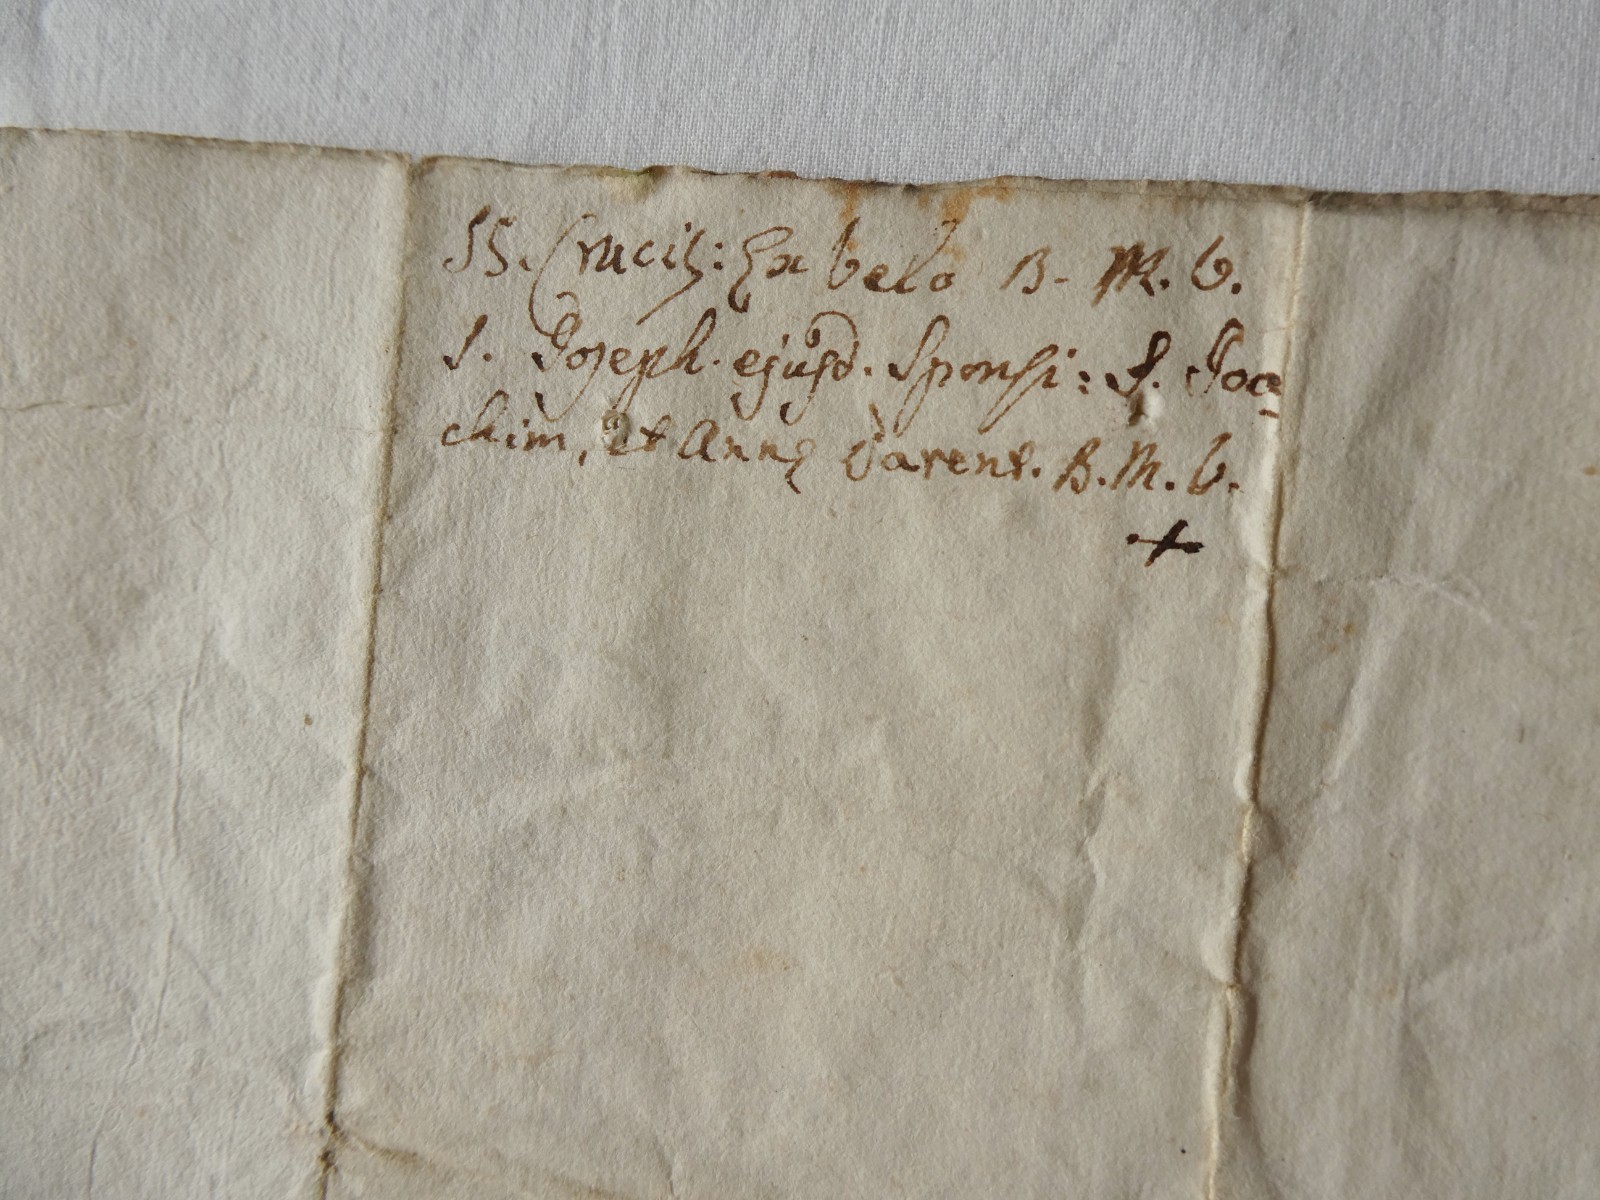 SS. Crucis: Ex velo B. M. V.
S. Joseph. ejusd. Sponsi: S. Joa-
chim, et Annę Parent. B. M. V.
+